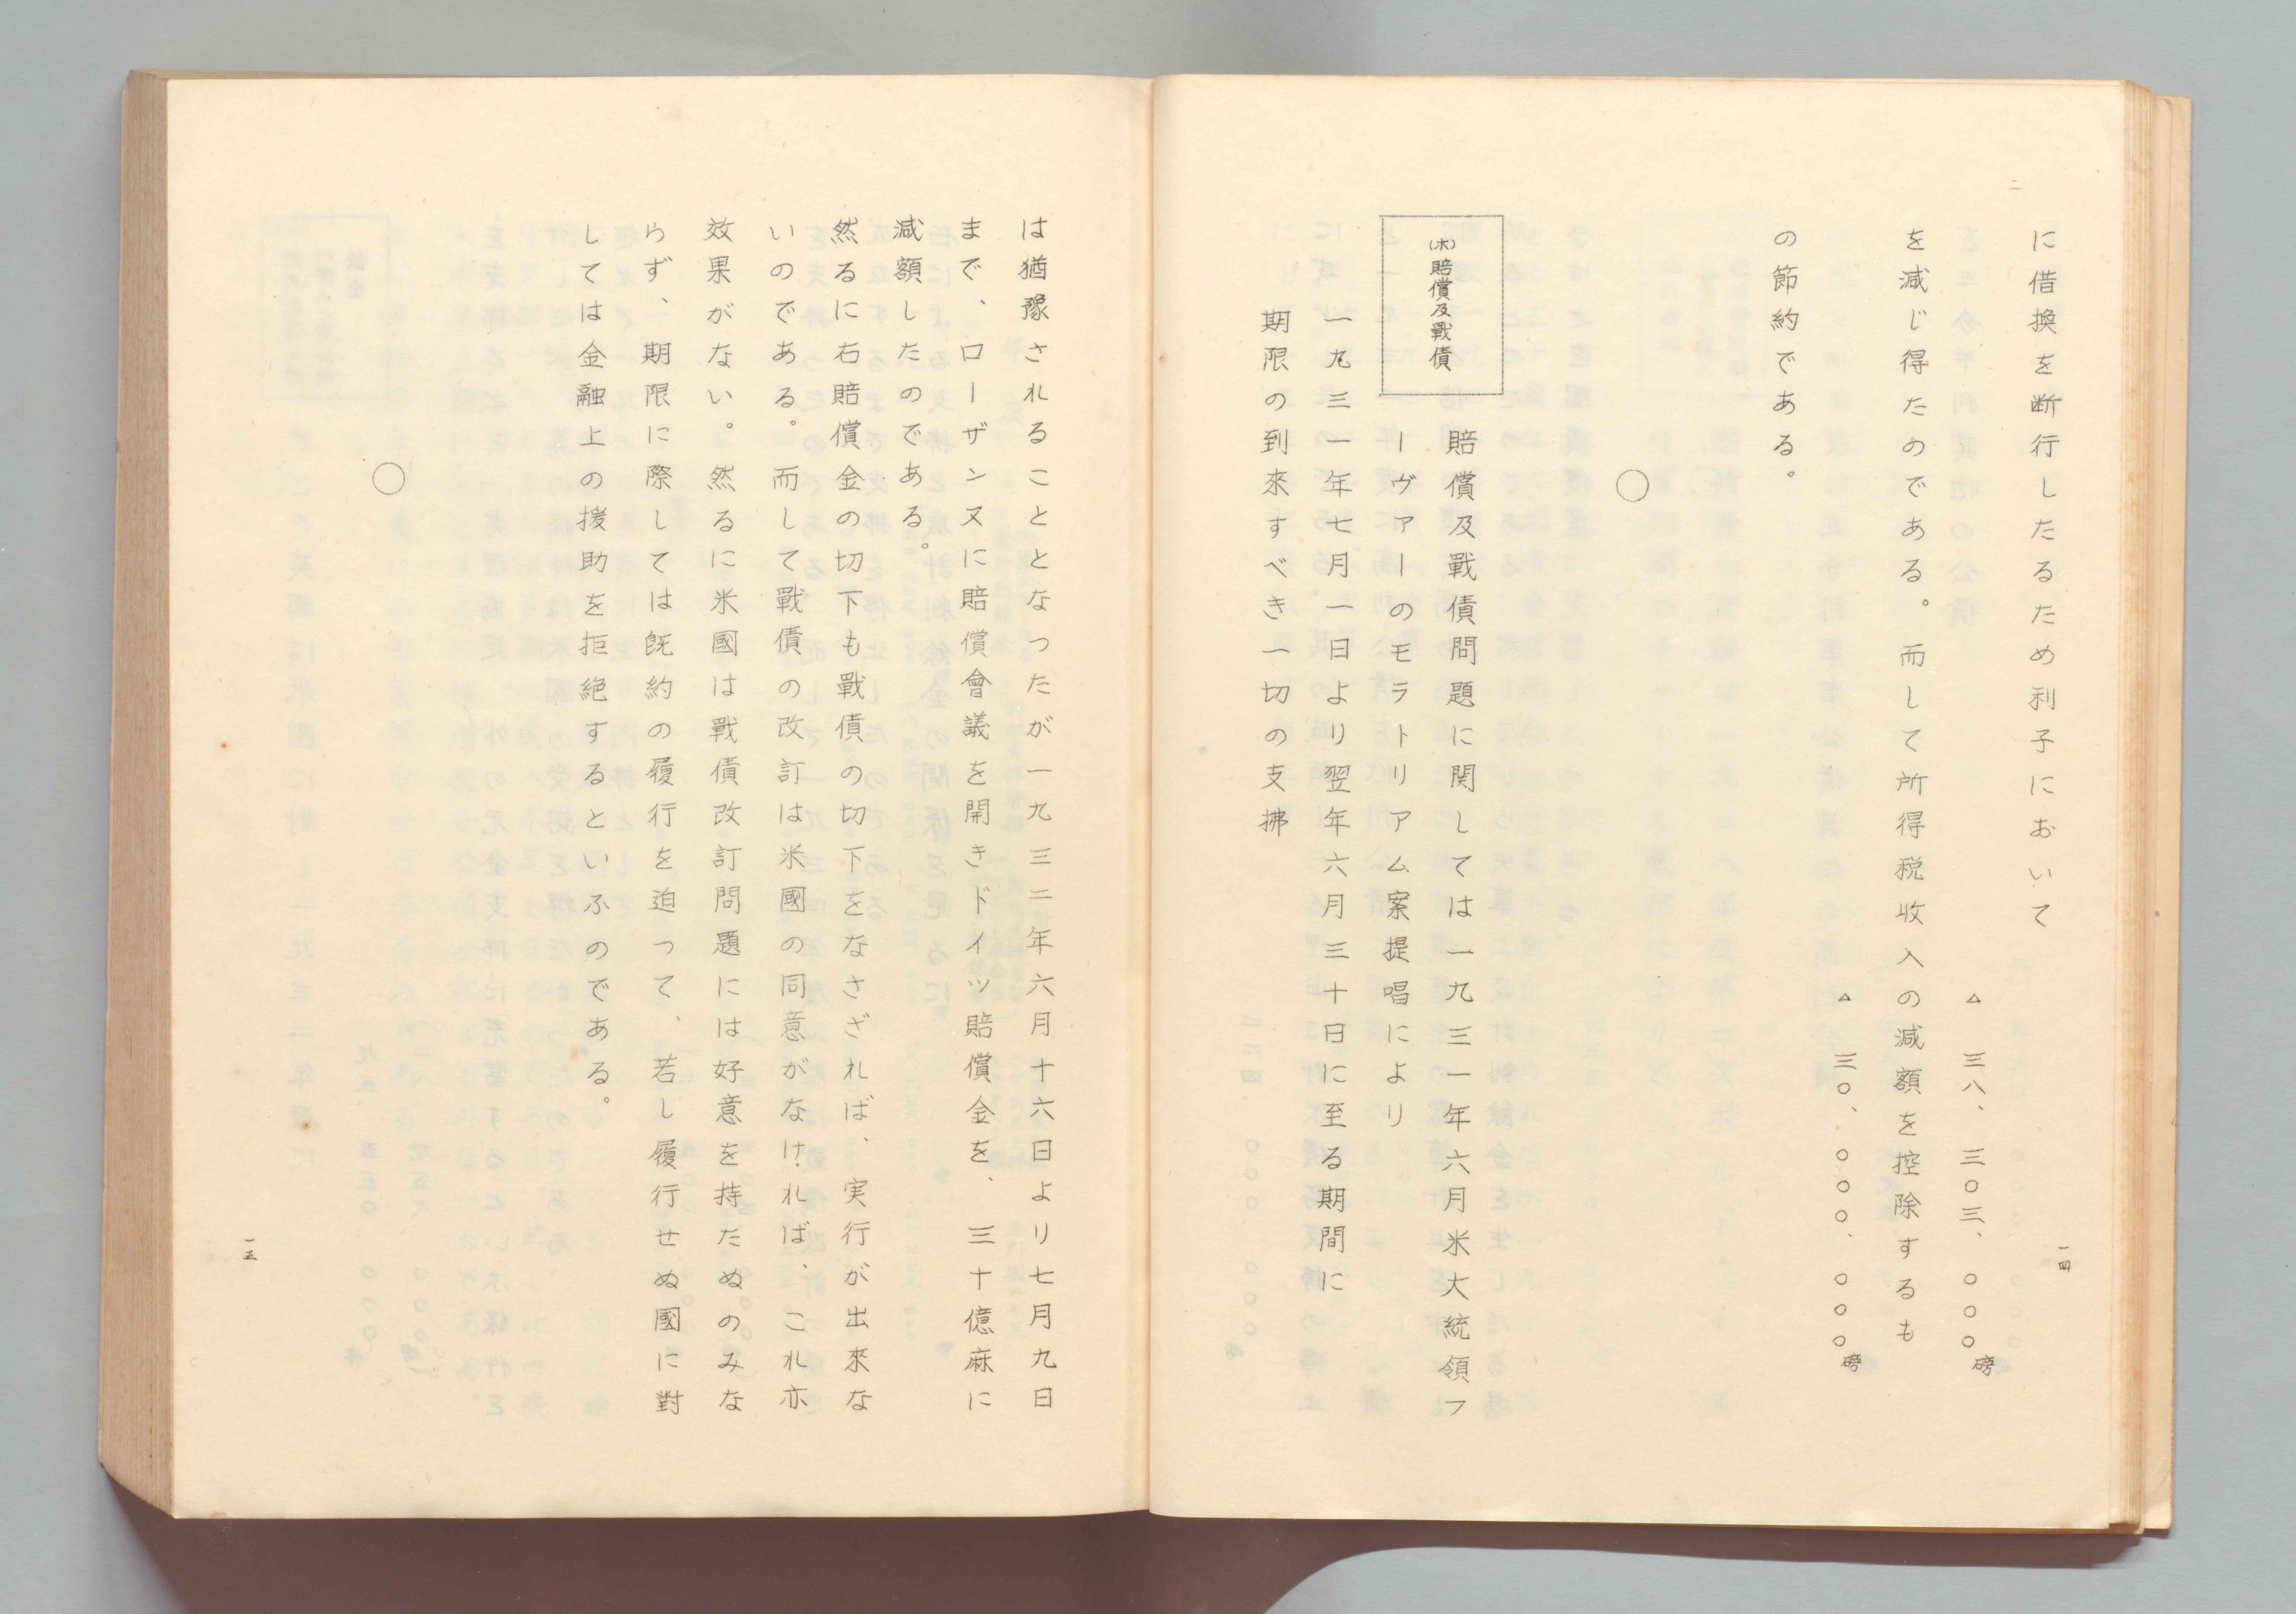 に借換を断行したるため利子において
△三八、三〇三、〇〇〇磅
を減じ得たのである。而して所得税收入の減額を控除するも
△三〇、〇〇〇、〇〇〇磅
の節約である。
○
(ホ)賠償及戰債
賠償及戰債問題に関しては一九三一年六月米大統領フ
ーヴァーのモラトリアム案提唱により
一九三一年七月一日より翌年六月三十日に至る期間に
期限の到來すべき一切の支拂
一四
は猶豫されることとなつたが一九三二年六月十六日より七月九日
まで、ローザンヌに賠償會議を開きドイツ賠償金を、三十億麻に
減額したのである。
然るに右賠償金の切下も戰債の切下をなさざれば、実行が出來な
いのである。而して戰債の改訂は米國の同意がなければ、これ亦
效果がない。然るに米國は戰債改訂問題には好意を持たぬのみな
らず、期限に際しては既約の履行を迫つて、若し履行せぬ國に對
しては金融上の援助を拒絶するといふのである。
○
一五